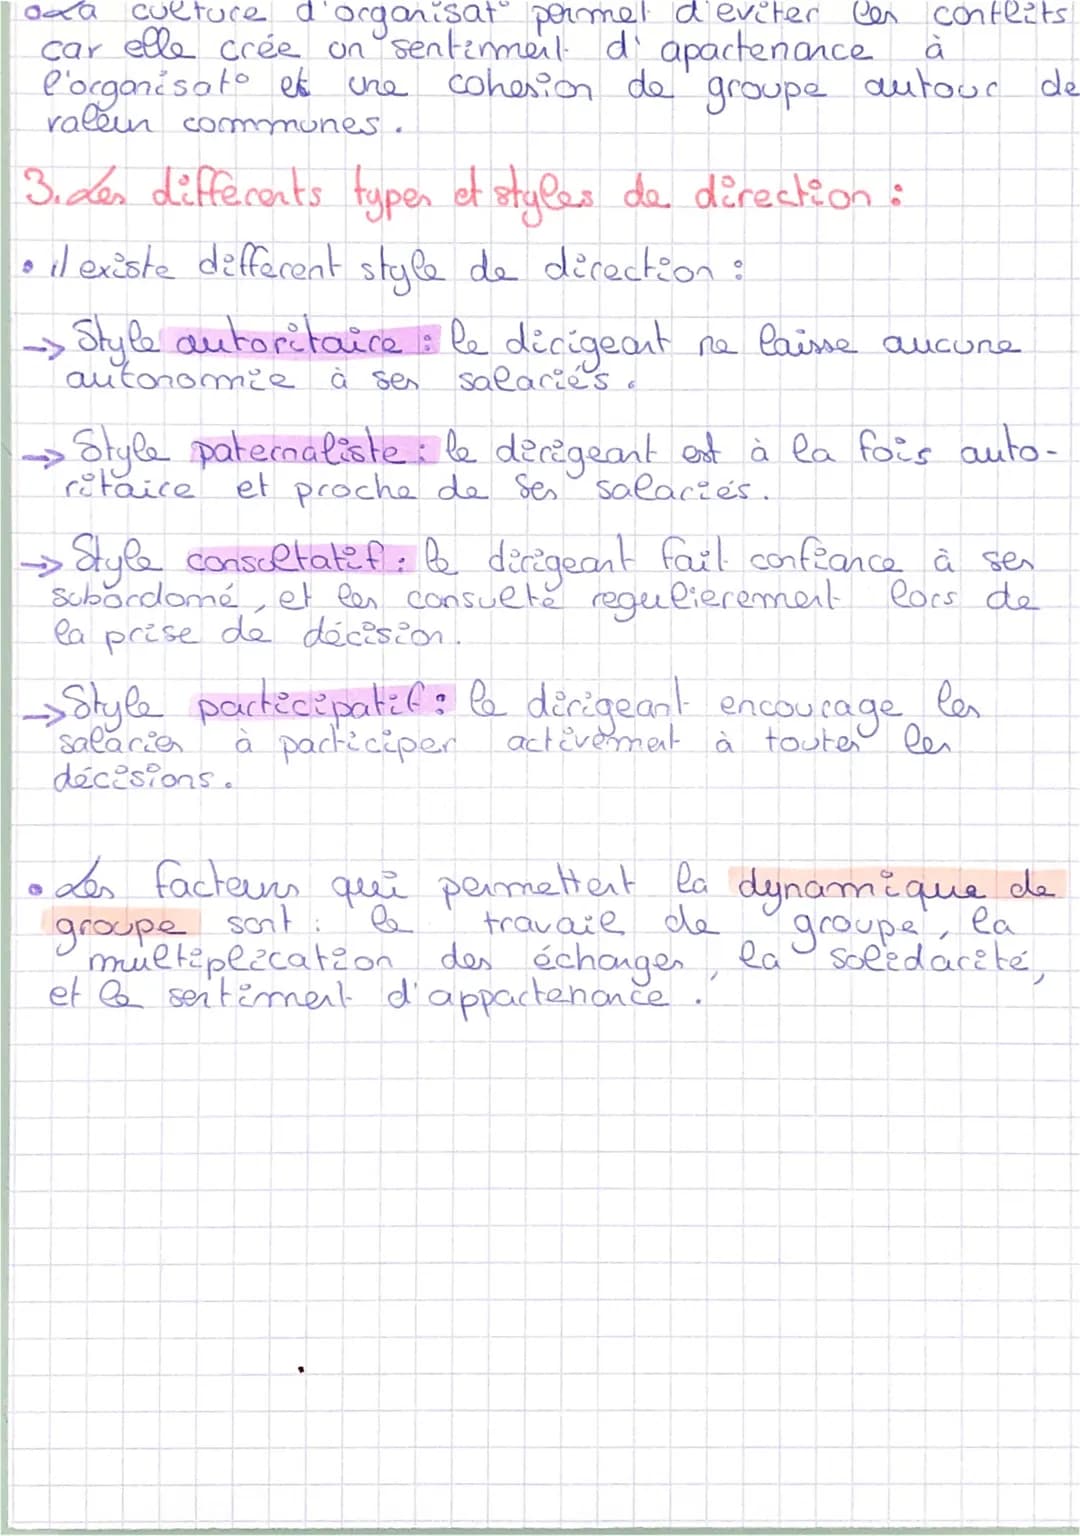 • La culture d'organisat° permet d'eviter les conflits
car elle crée un sentiment d'apartenance à
l'organisat° et une cohesion de groupe autour de
valeur communes.
3. Les différents types et styles de direction :
• il existe différent style de direction :
→ Style autoritaire : le dirigeant ne laisse aucune
autonomie à ses salariés.
→ Style paternaliste : le dirigeant est à la fois auto-
ritaire et proche de ses salariés.
→ Style consultatif : le dirigeant fait confiance à ses
subordomé, et les consulte regulierement lors de
la prise de décision.
→ Style participatif : le dirigeant encourage les
salariés à participer activement à toutes les
décisions.
• Les facteurs qui permettent la dynamique de
groupe sont : le travail de groupe, la
multiplication des échanges, la solidarité,
et le sentiment d'appartenance.